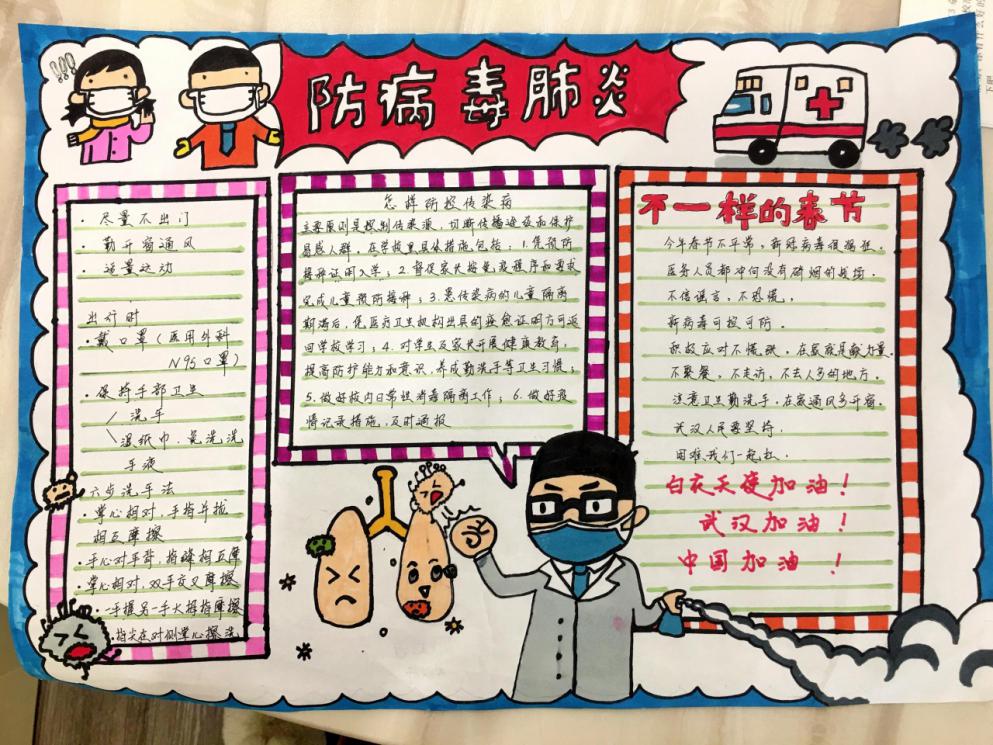 防病毒肺炎
· 尽量不出门
· 勤开窗通风
· 适量运动
出行时
· 戴口罩(医用外科
N95口罩)
· 保持手部卫生
洗手
湿纸巾、免洗洗
手液
六步洗手法
· 掌心相对,手指并拢
相互摩擦
· 手心对手背,指缝相互摩
· 掌心相对,双手交叉摩擦
· 一手握另一手大拇指摩擦
指尖在对侧掌心擦洗
怎样防控传染病
主要原则是控制传染源,切断传播途径和保护
易感人群,在学校里具体措施包括:1.凭预防
接种证明入学;2.督促家长按免疫程序和需求
完成儿童预防接种;3.患传染病的儿童隔离
期满后,凭医疗卫生机构出具的痊愈证明方可返
回学校学习;4.对学生及家长开展健康教育,
提高防护能力和意识,养成勤洗手等卫生习惯;
5.做好校内日常性消毒隔离工作;6.做好疫
情记录措施,及时通报
不一样的春节
今年春节不平常,新冠病毒很猖狂。
医务人员都冲向没有硝烟的战场。
不信谣言,不恐慌,
新病毒可控可防。
积极应对不慌张,在家就是献力量。
不聚餐,不走访,不去人多的地方。
注意卫生勤洗手,在家通风多开窗。
武汉人民要坚持,
困难我们一起扛。
白衣天使加油!
武汉加油!
中国加油!